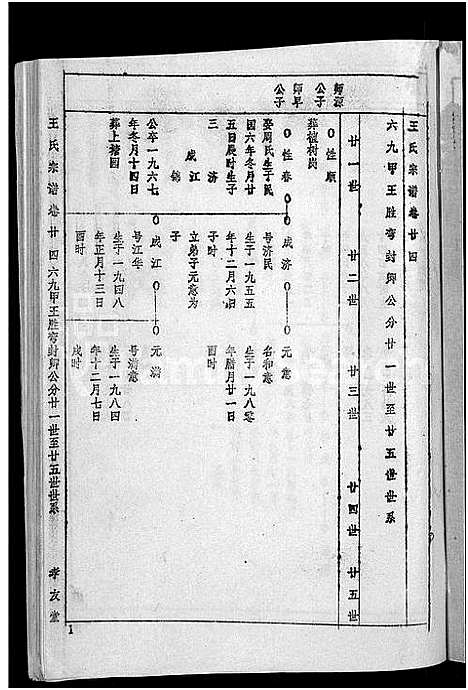 王氏宗谱卷廿四
六九甲王胜弯封卿公分廿一世至廿五世世系
廿一世 廿二世 廿三世 廿四世 廿五世
师源公子
师早公子
性顺
葬檀树岗
性春 成济 元意
娶周氏生于民 号济民 名和意
国六年冬月廿 生于一九五五 生于一九八零
五日辰时生子 年十二月六日 年腊月廿一日
三 济 子时 酉时
成江 立弟子元意为
锦 子
公卒一九六七 成江 元满
年冬月十四日 号江华 号清意
葬上塘园 生于一九四八 生于一九八四
年正月十三日 年十二月七日
酉时 戌时
王氏宗谱卷廿四六九甲王胜弯封卿公分廿一世至廿五世世系 孝友堂
1